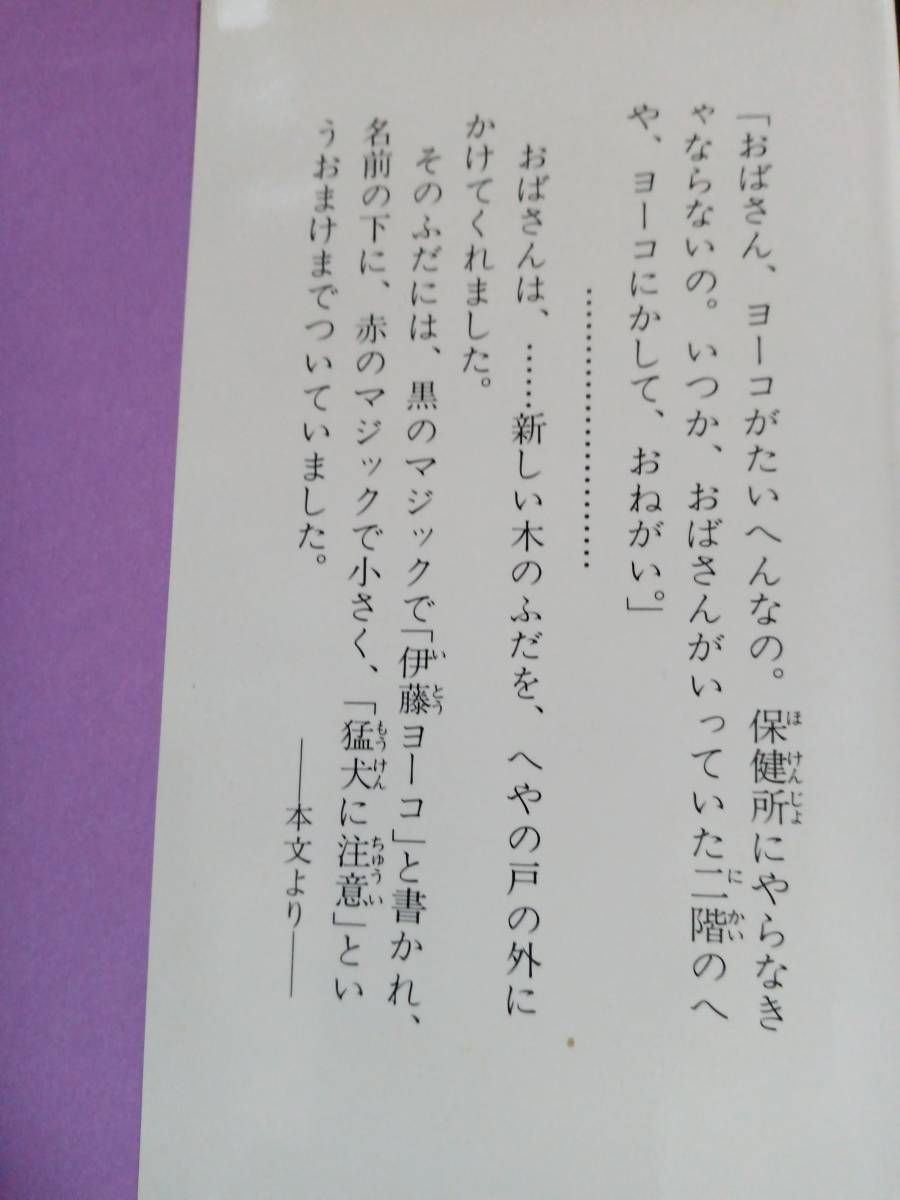 「おばさん、ヨーコがたいへんなの。保健所にやらなき
ゃならないの。いつか、おばさんがいっていた二階のへ
や、ヨーコにかして、おねがい。」
……………………
おばさんは、……新しい木のふだを、へやの戸の外に
かけてくれました。
そのふだには、黒のマジックで「伊藤ヨーコ」と書かれ、
名前の下に、赤のマジックで小さく、「猛犬に注意」とい
うおまけまでついていました。
——本文より——